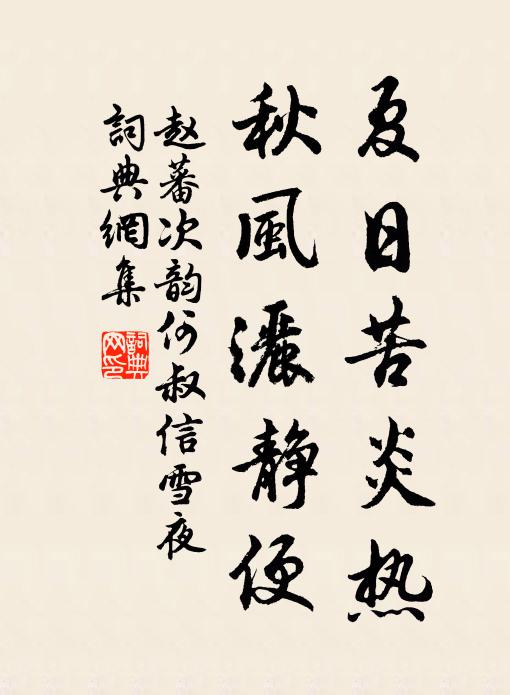 夏日苦炎热
秋風灑静便
赵蕃次韵何叔信雪夜
詞典網集
詞典网印